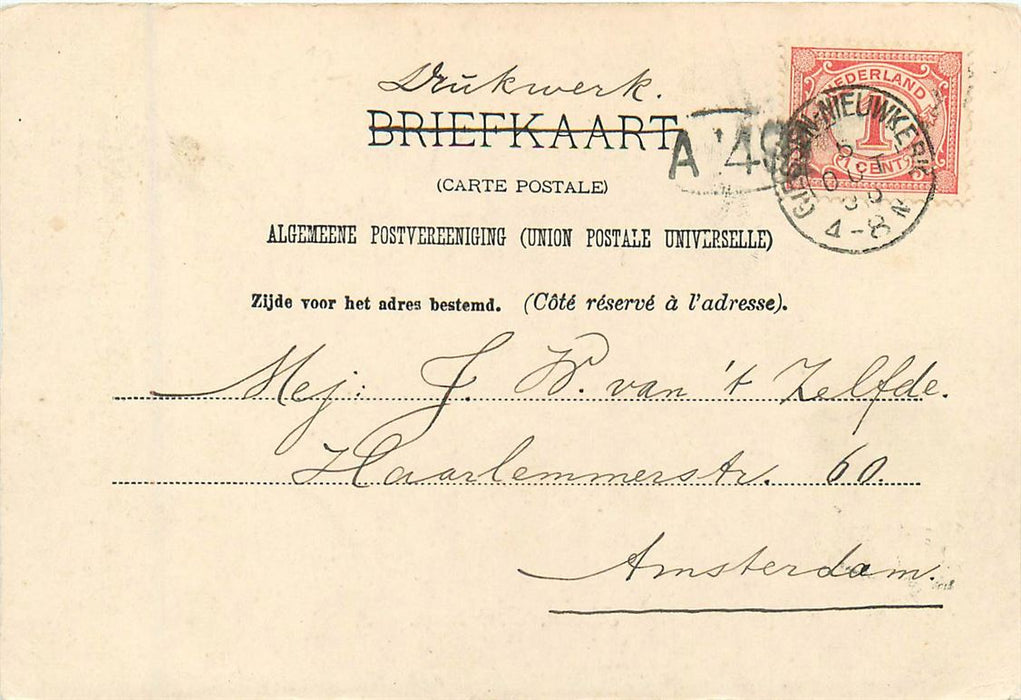 Drukwerk.
BRIEFKAART
(CARTE POSTALE)
ALGEMEENE POSTVEREENIGING (UNION POSTALE UNIVERSELLE)
Zijde voor het adres bestemd. (Côté réservé à l'adresse).
NEDERLAND
1
CENT
NIEUWKERK
5
OCT
4-8 N
A 49
Mej: J. W. van 't Zelfde.
Haarlemmerstr. 60.
Amsterdam.